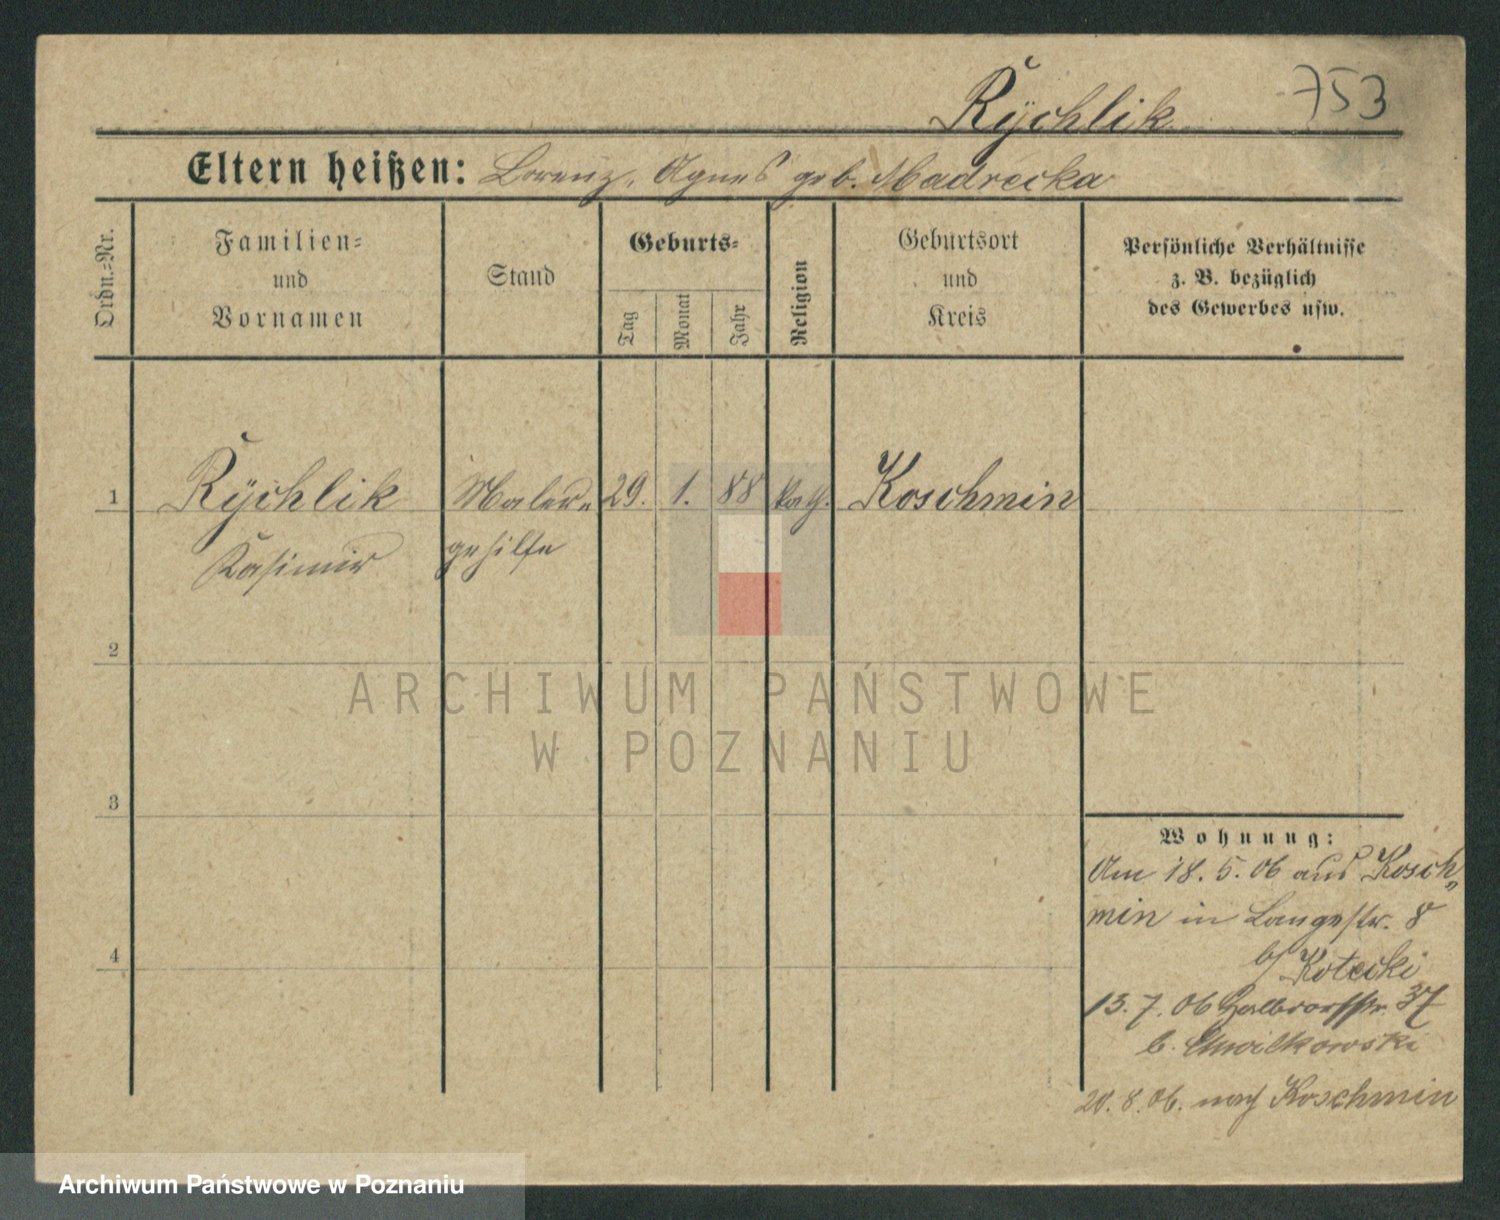 753
Rÿchlik
Eltern heißen: Lorenz, Agnes geb. Madrecka
Ordn.-Nr.
Familien-
und
Vornamen
Stand
Geburts-
Tag
Monat
Jahr
Religion
Geburtsort
und
Kreis
Persönliche Verhältnisse
z. B. bezüglich
des Gewerbes usw.
1 Rÿchlik Maler- 29. 1. 88 kath. Koschmin
Kasimir gehilfe
2
ARCHIWUM PAŃSTWOWE
W POZNANIU
3
Wohnung:
Am 18. 5. 06 aus Kosch-
min in Langestr. 8
b/ Kotecki
4
13. 7. 06 37
b. Chwilkowski
20. 8. 06. nach Koschmin
Archiwum Państwowe w Poznaniu